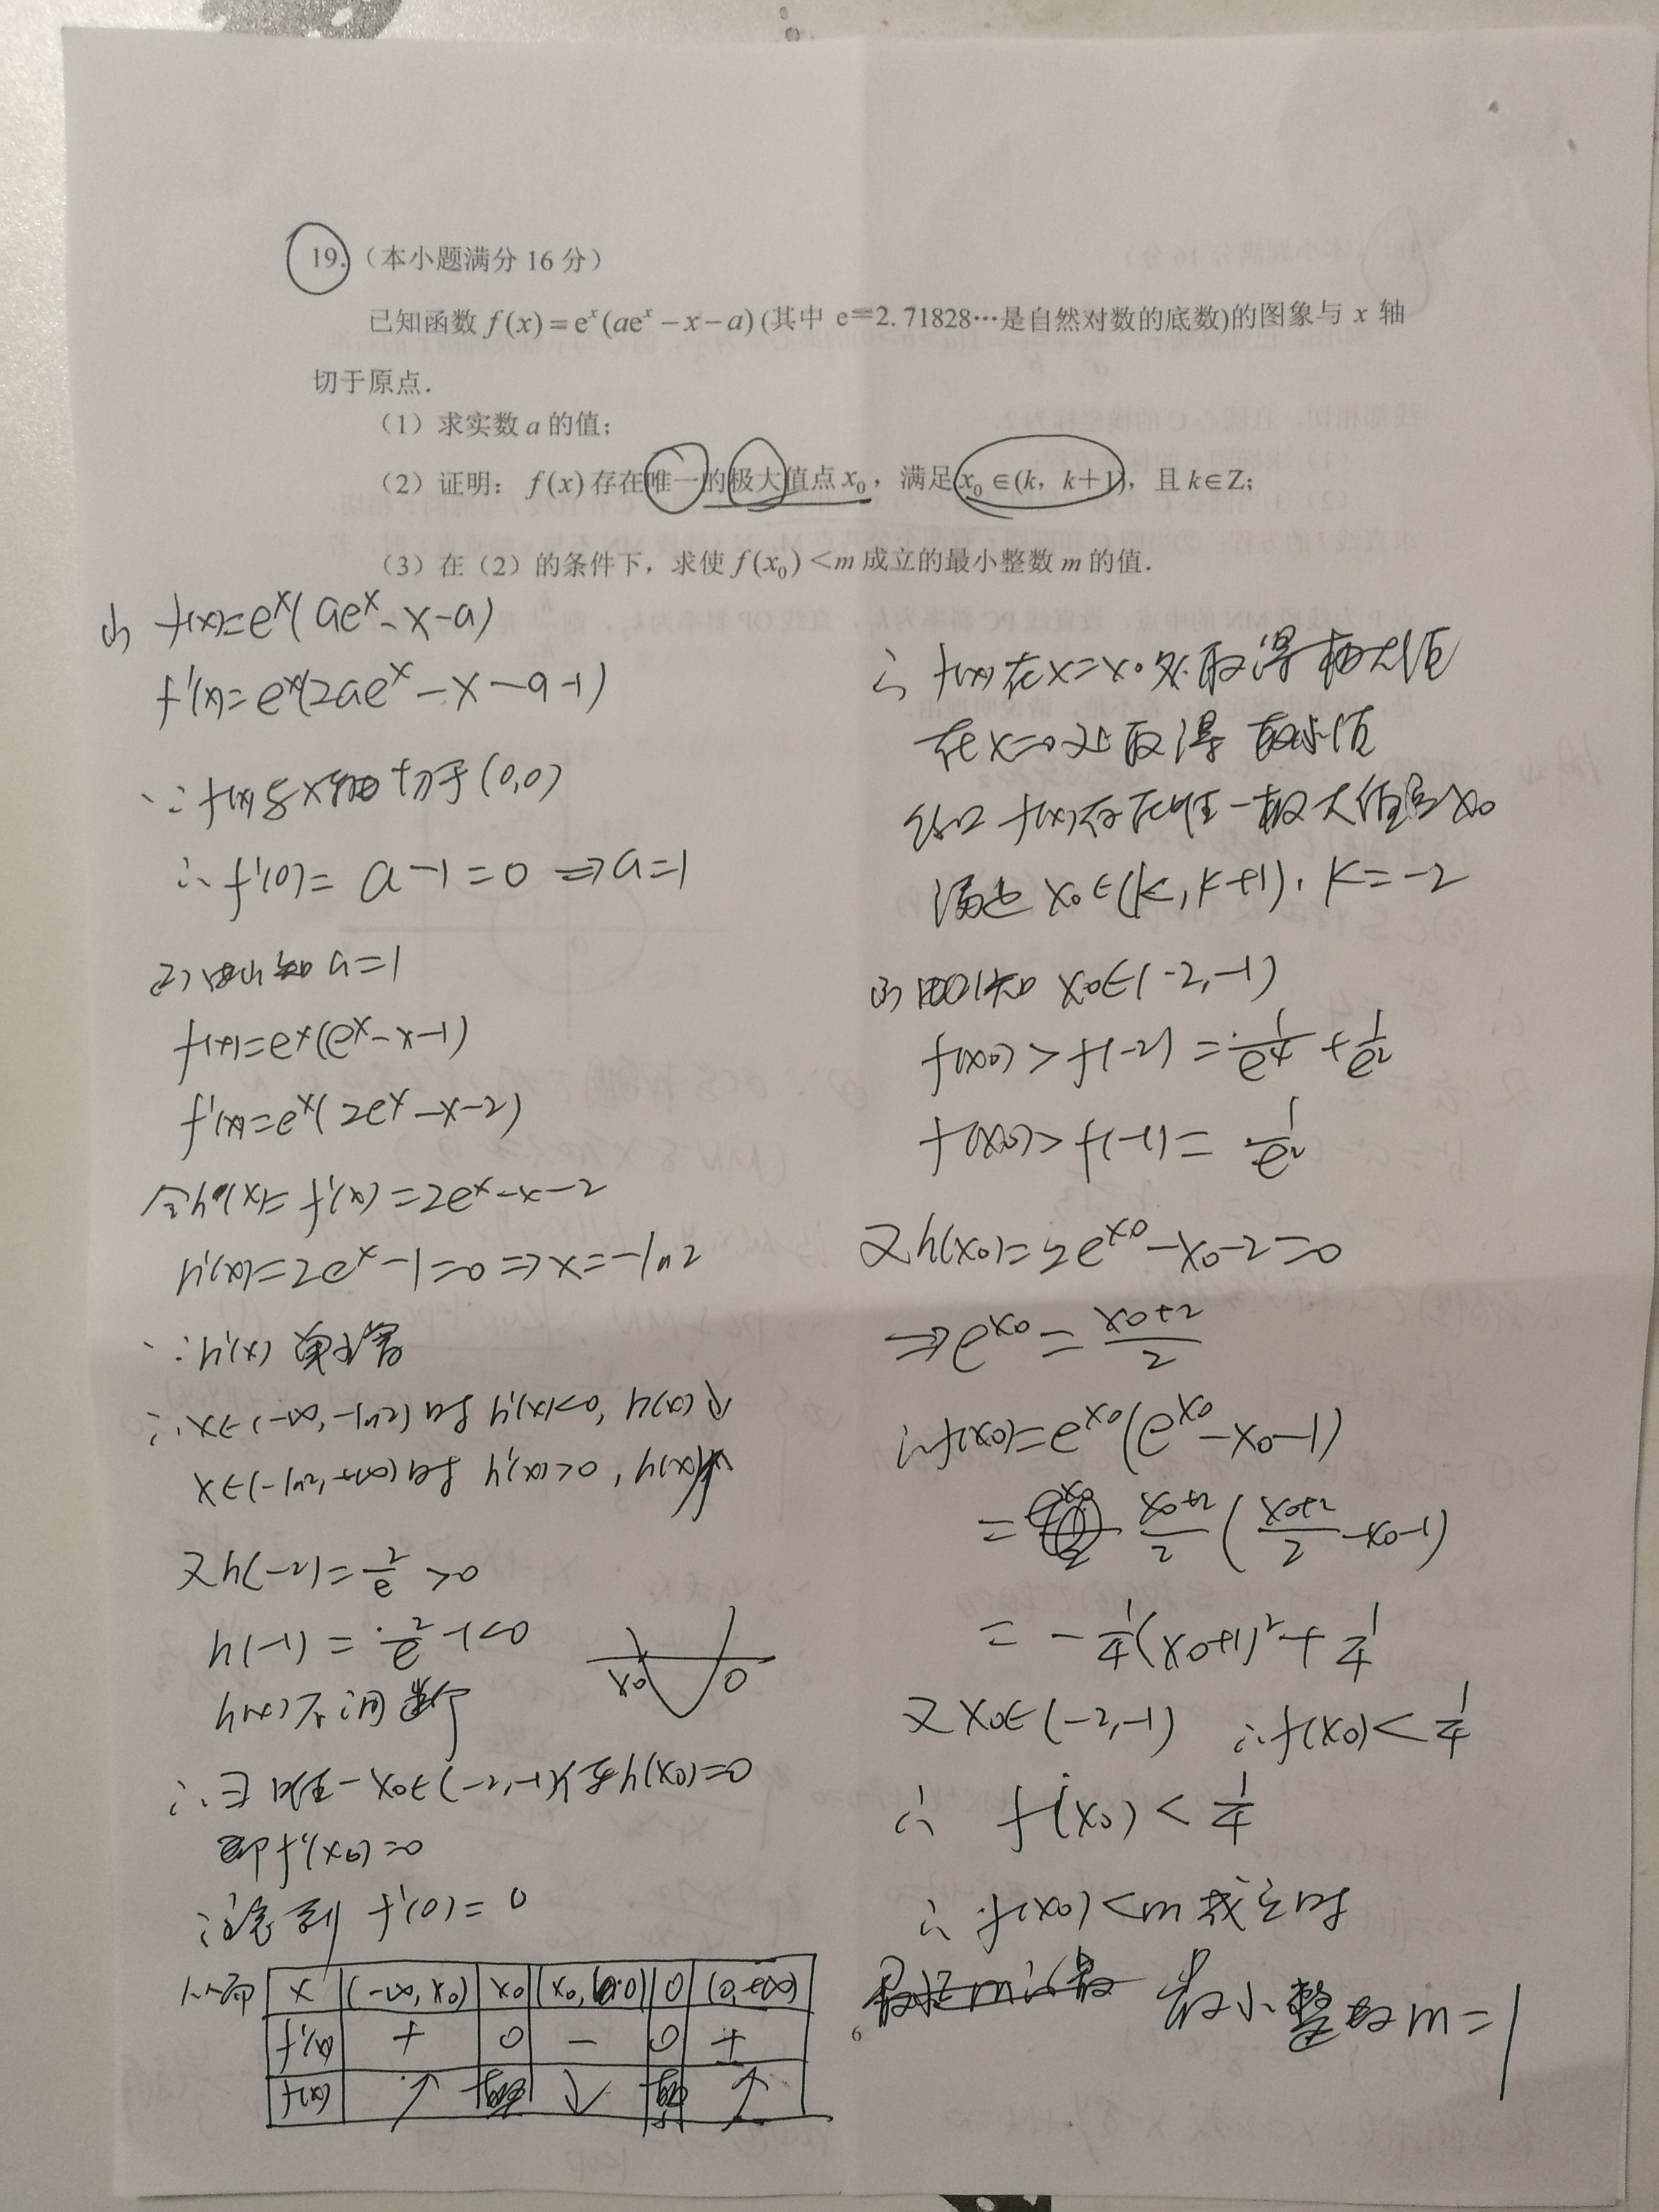 19.（本小题满分 16 分）
已知函数 f(x)=eˣ(aeˣ－x－a)(其中 e=2.71828…是自然对数的底数)的图象与 x 轴
切于原点.
（1）求实数 a 的值；
（2）证明：f(x)存在唯一的极大值点 x₀，满足 x₀∈(k，k+1)，且 k∈Z；
（3）在（2）的条件下，求使 f(x₀)<m 成立的最小整数 m 的值.
(1) f(x)=eˣ(aeˣ-x-a)
f'(x)=eˣ(2aeˣ-x-a-1)
∵f(x)与x轴切于(0,0)
∴f'(0)= a-1=0 ⇒a=1
(2)由(1)知 a=1
f(x)=eˣ(eˣ-x-1)
f'(x)=eˣ(2eˣ-x-2)
令h(x)=f'(x)=2eˣ-x-2
h'(x)=2eˣ-1=0⇒x=-ln2
∵h'(x)单增
∴x∈(-∞,-ln2)时 h'(x)<0, h(x)↓
x∈(-ln2,+∞)时 h'(x)>0, h(x)↑
又h(-2)=2/e>0
h(-1)=2/e-1<0
h(x)不间断
x₀ 0
∴∃唯一x₀∈(-2,-1)使h(x₀)=0
即f'(x₀)=0
注意到 f'(0)=0
从而 x (-∞,x₀) x₀ (x₀,0) 0 (0,+∞)
f'(x) + 0 - 0 +
f(x) ↗ ↘ ↗
∴ f(x)在x=x₀处取得极大值
在x=0处取得极小值
综上 f(x)存在唯一极大值点x₀
满足 x₀∈(k,k+1), k=-2
(3)由(2)知 x₀∈(-2,-1)
f(x₀)>f(-2)=1/e⁴+1/e²
f(x₀)>f(-1)=1/e²
又h(x₀)=2e^x₀-x₀-2=0
⇒e^x₀=(x₀+2)/2
∴f(x₀)=e^x₀(e^x₀-x₀-1)
= (x₀+2)/2((x₀+2)/2-x₀-1)
=-1/4(x₀+1)²+1/4
又x₀∈(-2,-1) ∴f(x₀)<1/4
∴ f(x₀)<1/4
∴ f(x₀)<m 成立时
最小整数m=1
6